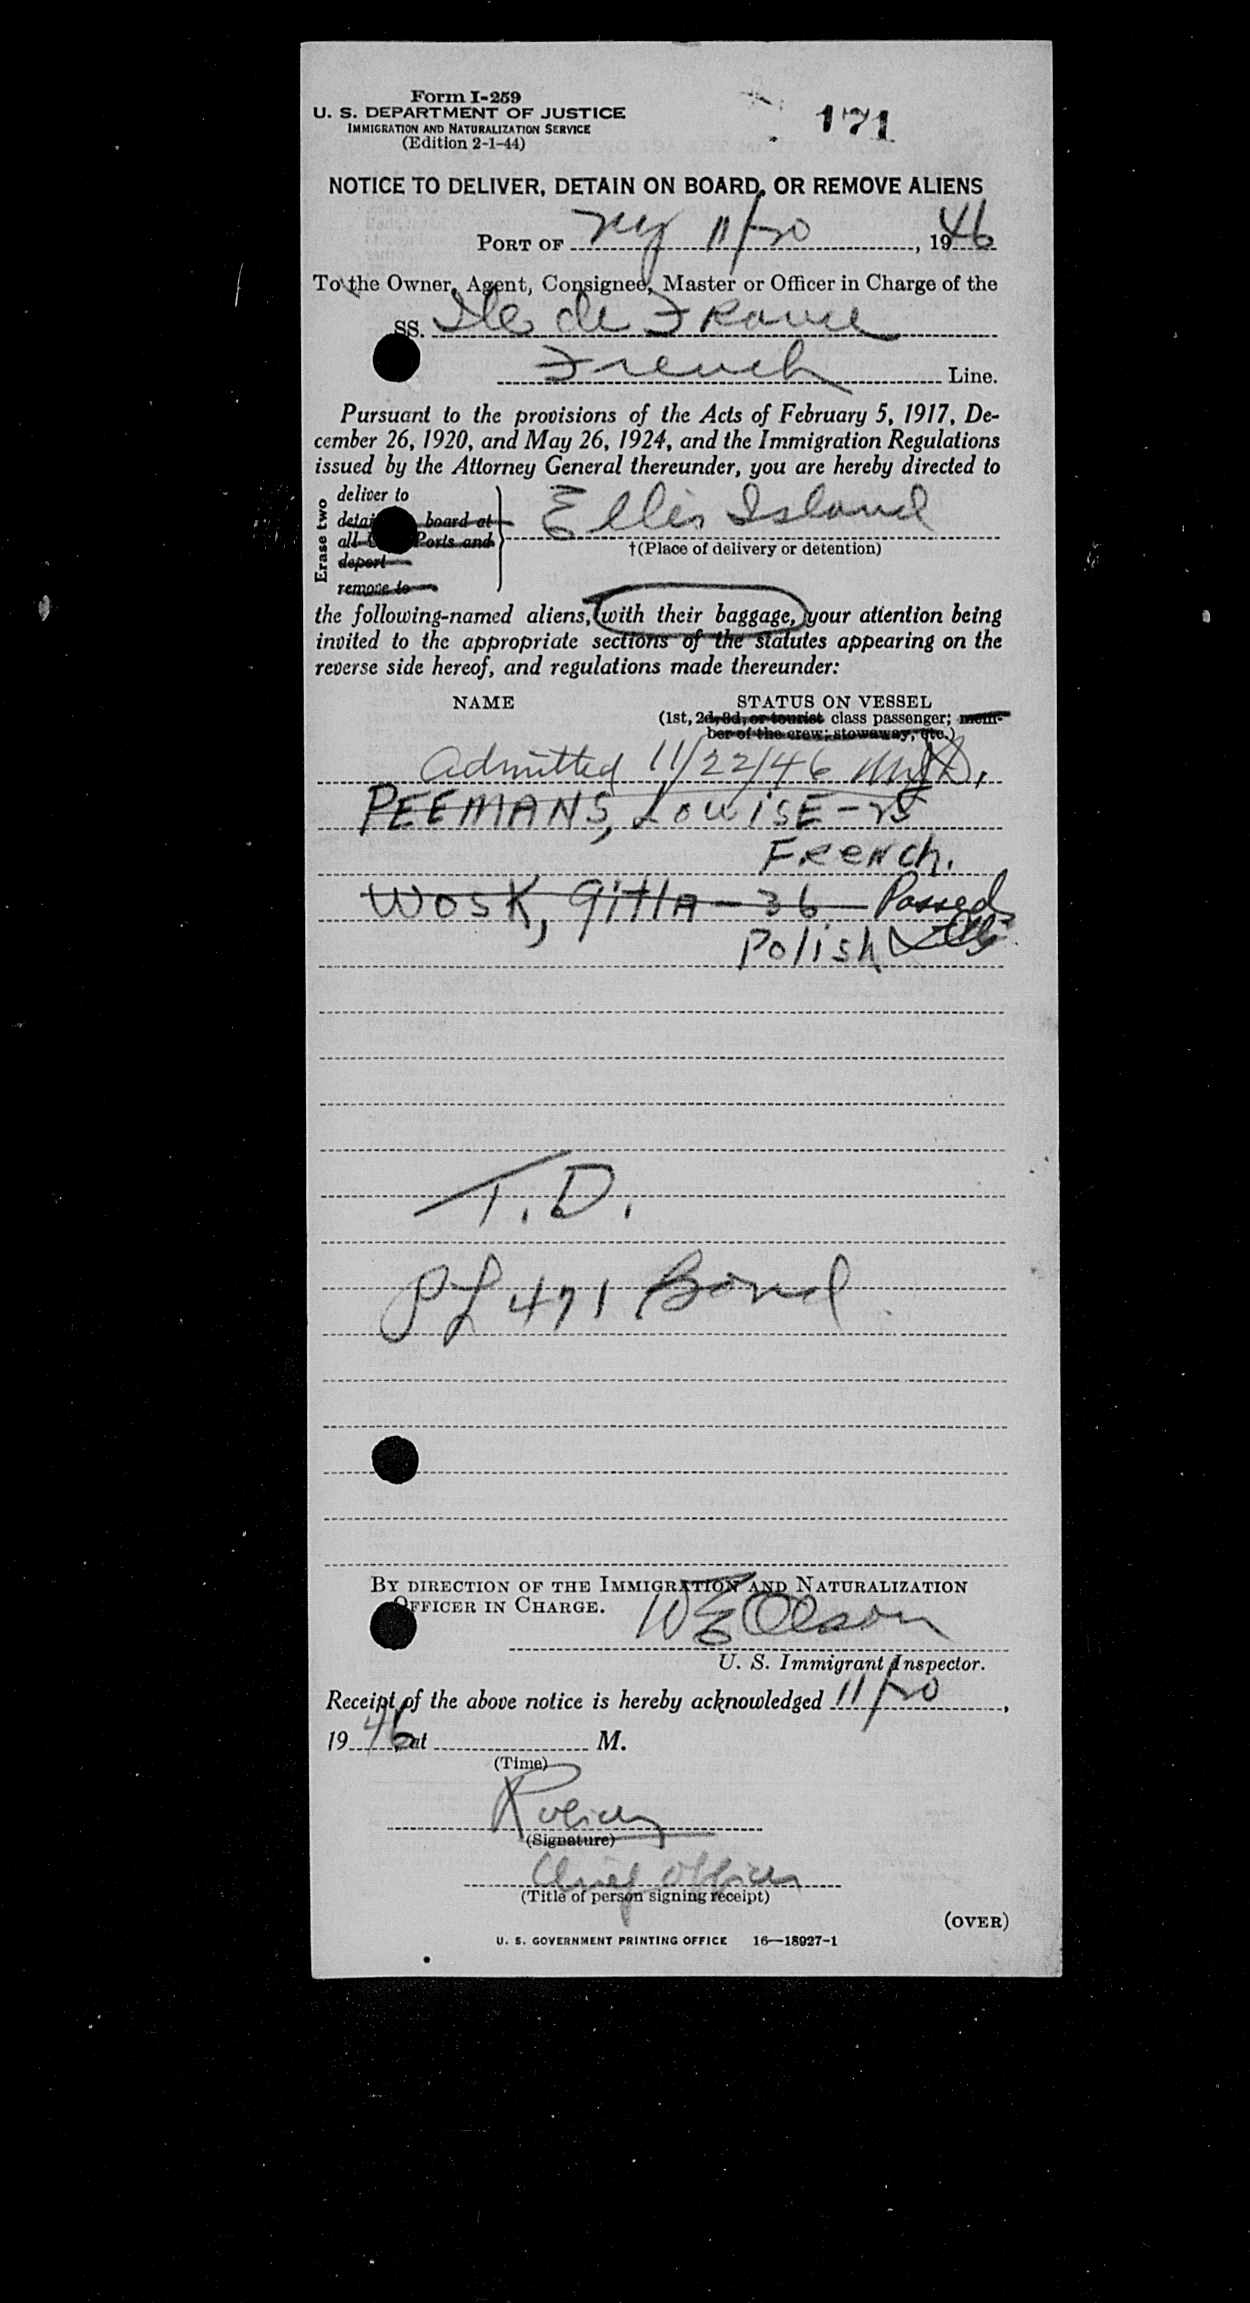 Form I-259
U. S. DEPARTMENT OF JUSTICE
IMMIGRATION AND NATURALIZATION SERVICE
(Edition 2-1-44)
171
NOTICE TO DELIVER, DETAIN ON BOARD, OR REMOVE ALIENS
PORT OF NY 11/20, 1946
To the Owner, Agent, Consignee, Master or Officer in Charge of the
SS. Ile de France
French Line.
Pursuant to the provisions of the Acts of February 5, 1917, De-
cember 26, 1920, and May 26, 1924, and the Immigration Regulations
issued by the Attorney General thereunder, you are hereby directed to
Erase two
deliver to
board at
Ports and
deport
remove to
Ellis Island
†(Place of delivery or detention)
the following-named aliens, with their baggage, your attention being
invited to the appropriate sections of the statutes appearing on the
reverse side hereof, and regulations made thereunder:
NAME STATUS ON VESSEL
(1st, 2d, 3d, or tourist class passenger; mem-
ber of the crew; stowaway, etc.)
Admitted 11/22/46
PEEMANS, LOUISE - 25
French.
WOSK, gitla - 36 Passed
Polish
T.D.
PL 471 Bond
BY DIRECTION OF THE IMMIGRATION AND NATURALIZATION
OFFICER IN CHARGE.
W E Olson
U. S. Immigrant Inspector.
Receipt of the above notice is hereby acknowledged 11/20,
1946 at M.
(Time)
(Signature)
Chief officer
(Title of person signing receipt)
(OVER)
U. S. GOVERNMENT PRINTING OFFICE 16—18927-1